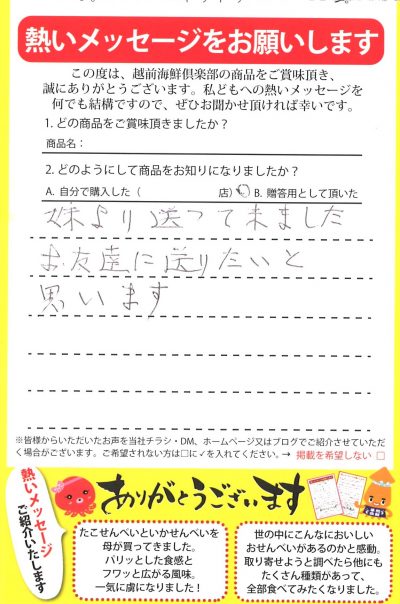 熱いメッセージをお願いします
この度は、越前海鮮倶楽部の商品をご賞味頂き、
誠にありがとうございます。私どもへの熱いメッセージを
何でも結構ですので、ぜひお聞かせ頂ければ幸いです。
1. どの商品をご賞味頂きましたか？
商品名：
2. どのようにして商品をお知りになりましたか？
A. 自分で購入した（ 店） B. 贈答用として頂いた
妹より送って来ました
お友達に送りたいと
思います
※皆様からいただいたお声を当社チラシ・DM、ホームページ又はブログでご紹介させていただ
く場合がございます。ご希望されない方は□に✓を入れてください。→ 掲載を希望しない □
熱いメッセージ
ご紹介いたします
ありがとうございます
たこせんべいといかせんべいを
母が買ってきました。
パリッとした食感と
フワッと広がる風味。
一気に虜になりました！
世の中にこんなにおいしい
おせんべいがあるのかと感動。
取り寄せようと調べたら他にも
たくさん種類があって、
全部食べてみたくなりました。